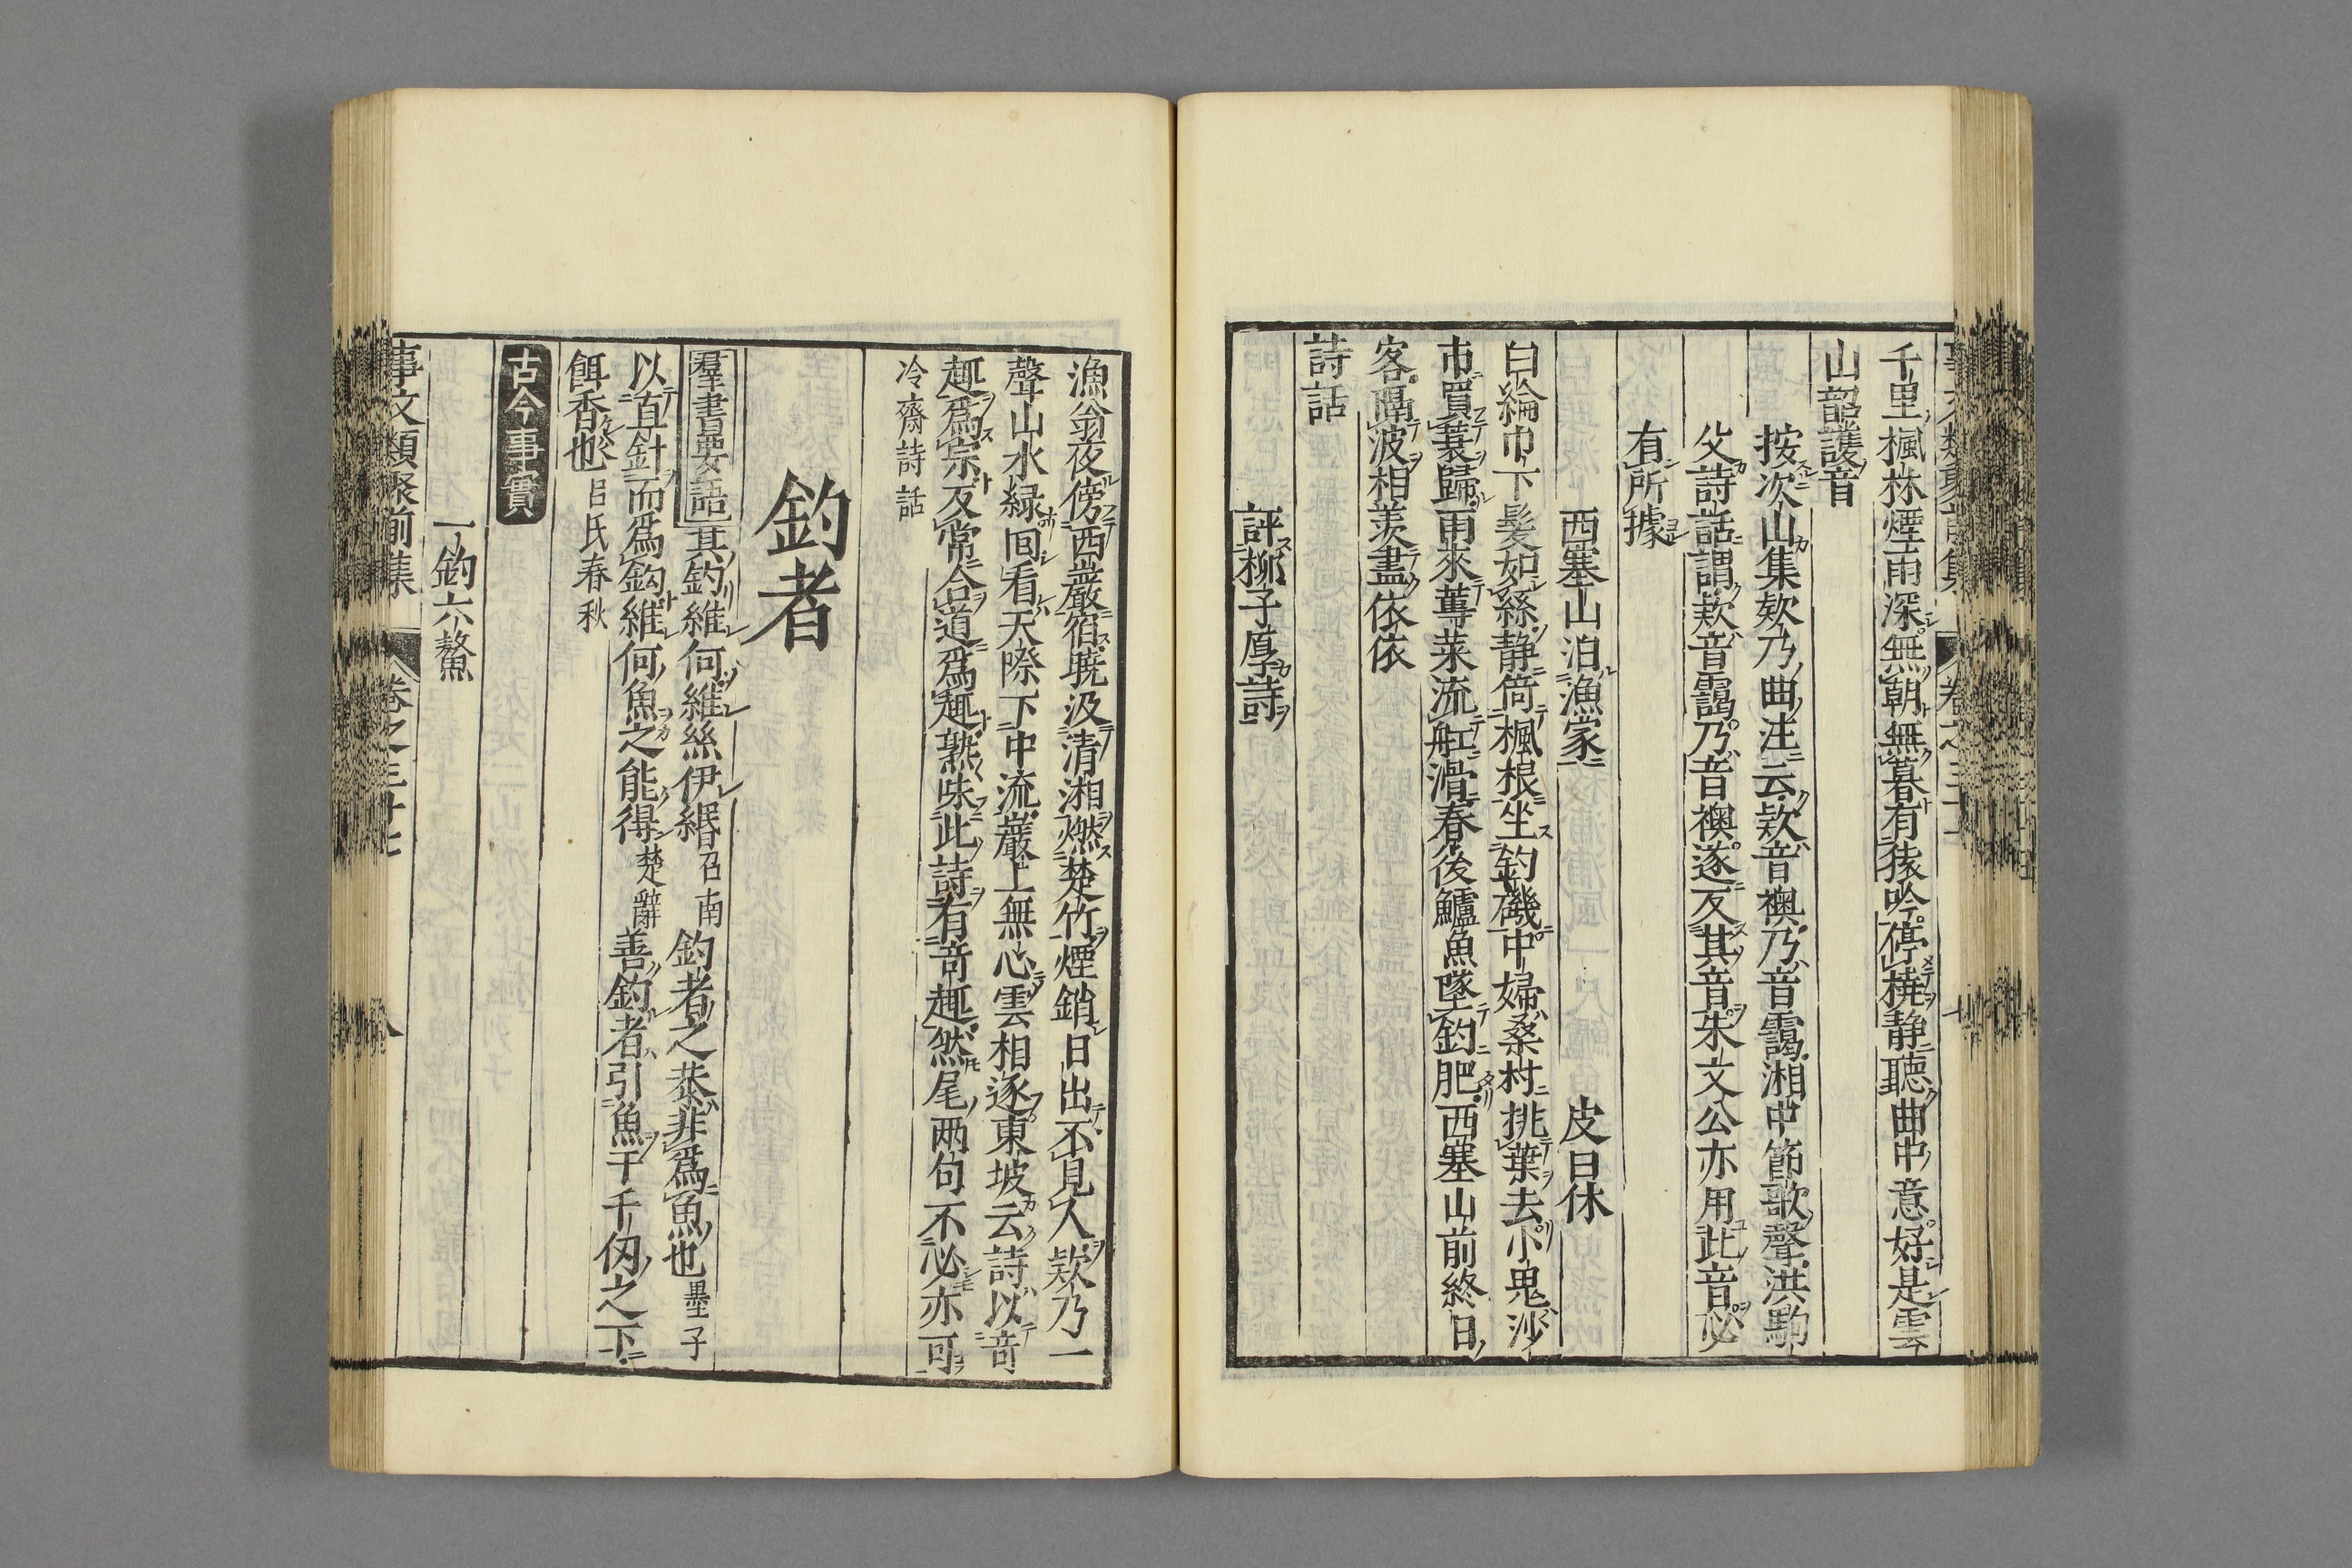 千里楓林煙雨深無朝無暮有猿吟停橈静聽曲中意好是雲
山韶護音
按次山集欸乃曲注云欸音襖乃音靄湘中節歌聲洪駒
父詩話謂欸音靄乃音襖遂反其音朱文公亦用此音必
有所據
西塞山泊漁家　皮日休
白綸巾下髮如絲静倚楓根坐釣磯中婦桑村挑葉去小兒沙
市買蓑歸雨來蓴菜流舡滑春後鱸魚墜釣肥西塞山前終日
客隔波相羨盡依依
詩話
評柳子厚詩
漁翁夜傍西巖宿曉汲清湘燃楚竹煙銷日出不見人欸乃一
聲山水緑回看天際下中流巖上無心雲相逐東坡云詩以竒
趣爲宗反常合道爲趣熟味此詩有竒趣然尾兩句不必亦可
冷齋詩話
釣者
羣書要語 其釣維何維絲伊緡召南 釣者之恭非爲魚也墨子
以直針而爲鈎維何魚之能得楚辭 善釣者引魚于千仭之下
餌香也吕氏春秋
古今事實
一釣六鰲
事文類聚前集 卷之三十七 八